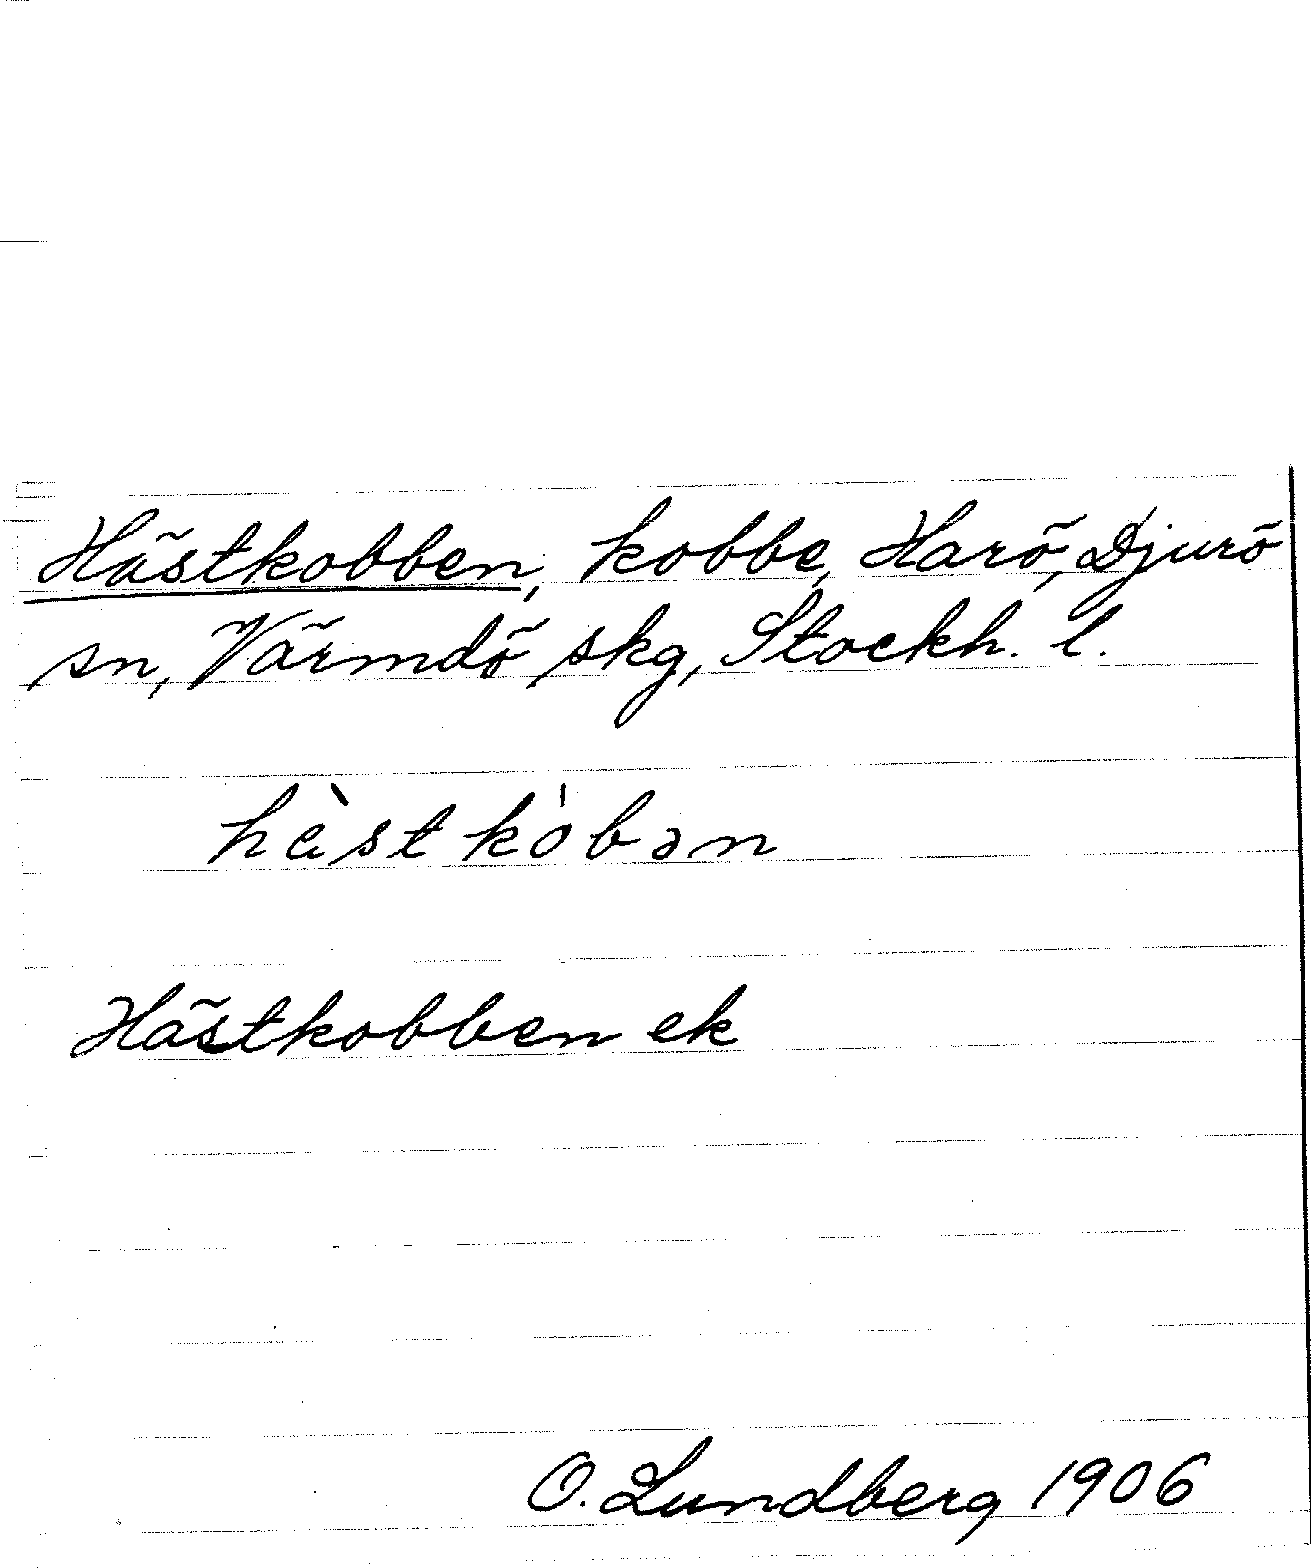 Hästkobben, kobbe, Harö, Djurö
sn, Värmdö skg, Stockh. l.
hästkòbən
Hästkobben ek
O. Lundberg 1906